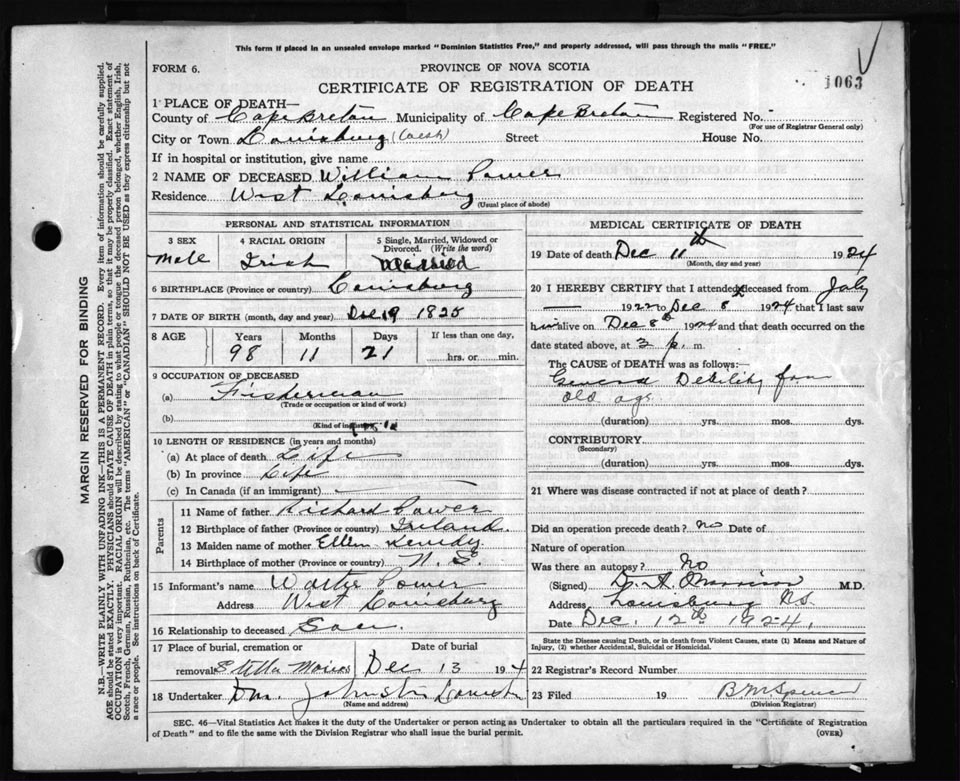 This form if placed in an unsealed envelope marked "Dominion Statistics Free," and properly addressed, will pass through the mails "FREE."
FORM 6.
PROVINCE OF NOVA SCOTIA
1063
CERTIFICATE OF REGISTRATION OF DEATH
1 PLACE OF DEATH—
County of Cape Breton Municipality of Cape Breton Registered No.
(For use of Registrar General only)
City or Town Louisburg Street House No.
If in hospital or institution, give name
2 NAME OF DECEASED William Power
Residence West Louisburg
(Usual place of abode)
PERSONAL AND STATISTICAL INFORMATION
3 SEX 4 RACIAL ORIGIN 5 Single, Married, Widowed or Divorced. (Write the word)
Male Irish Married
6 BIRTHPLACE (Province or country) Louisburg
7 DATE OF BIRTH (month, day and year) Dec 19 1825
8 AGE Years Months Days If less than one day,
98 11 21 hrs. or min.
9 OCCUPATION OF DECEASED
(a) Fisherman
(Trade or occupation or kind of work)
(b)
(Kind of industry)
10 LENGTH OF RESIDENCE (in years and months)
(a) At place of death Life
(b) In province Life
(c) In Canada (if an immigrant)
Parents
11 Name of father Richard Power
12 Birthplace of father (Province or country) Ireland.
13 Maiden name of mother Ellen Kenedy
14 Birthplace of mother (Province or country) N. S.
15 Informant's name Walter Power
Address West Louisburg
16 Relationship to deceased Son
17 Place of burial, cremation or removal Stella Maires Date of burial Dec 13 1924
18 Undertaker Dm. Johnston Louisbg
(Name and address)
MEDICAL CERTIFICATE OF DEATH
19 Date of death Dec 11th 1924
(Month, day and year)
20 I HEREBY CERTIFY that I attended deceased from July
1922 to Dec 8 1924 that I last saw
him alive on Dec 8th 1924 and that death occurred on
date stated above, at 3 p. m.
The CAUSE OF DEATH was as follows:—
General Debility from
old age
(duration) yrs. mos. dys.
CONTRIBUTORY.
(Secondary)
(duration) yrs. mos. dys.
21 Where was disease contracted if not at place of death?
Did an operation precede death? no Date of
Nature of operation
Was there an autopsy? No
(Signed) D. A. Morrison M.D.
Address Louisburg N.S.
Date Dec. 12th 1924.
State the Disease causing Death, or in death from Violent Causes, state (1) Means and Nature of Injury, (2) whether Accidental, Suicidal or Homicidal.
22 Registrar's Record Number
23 Filed 19 B M Spencer
(Division Registrar)
SEC. 46—Vital Statistics Act makes it the duty of the Undertaker or person acting as Undertaker to obtain all the particulars required in the "Certificate of Registration
of Death" and to file the same with the Division Registrar who shall issue the burial permit.
(OVER)
MARGIN RESERVED FOR BINDING
N.B.—WRITE PLAINLY, WITH UNFADING INK—THIS IS A PERMANENT RECORD. Every item of information should be carefully supplied.
AGE should be stated EXACTLY. PHYSICIANS should STATE CAUSE OF DEATH in plain terms, so that it may be properly classified. Exact statement of
OCCUPATION is very important. RACIAL ORIGIN will be described by stating to what people or tongue the deceased person belonged, whether English, Irish,
Scotch, French, German, Russian, Ruthenian, etc. The terms "AMERICAN" or "CANADIAN" SHOULD NOT BE USED as they express citizenship but not
a race or people. See instructions on back of Certificate.